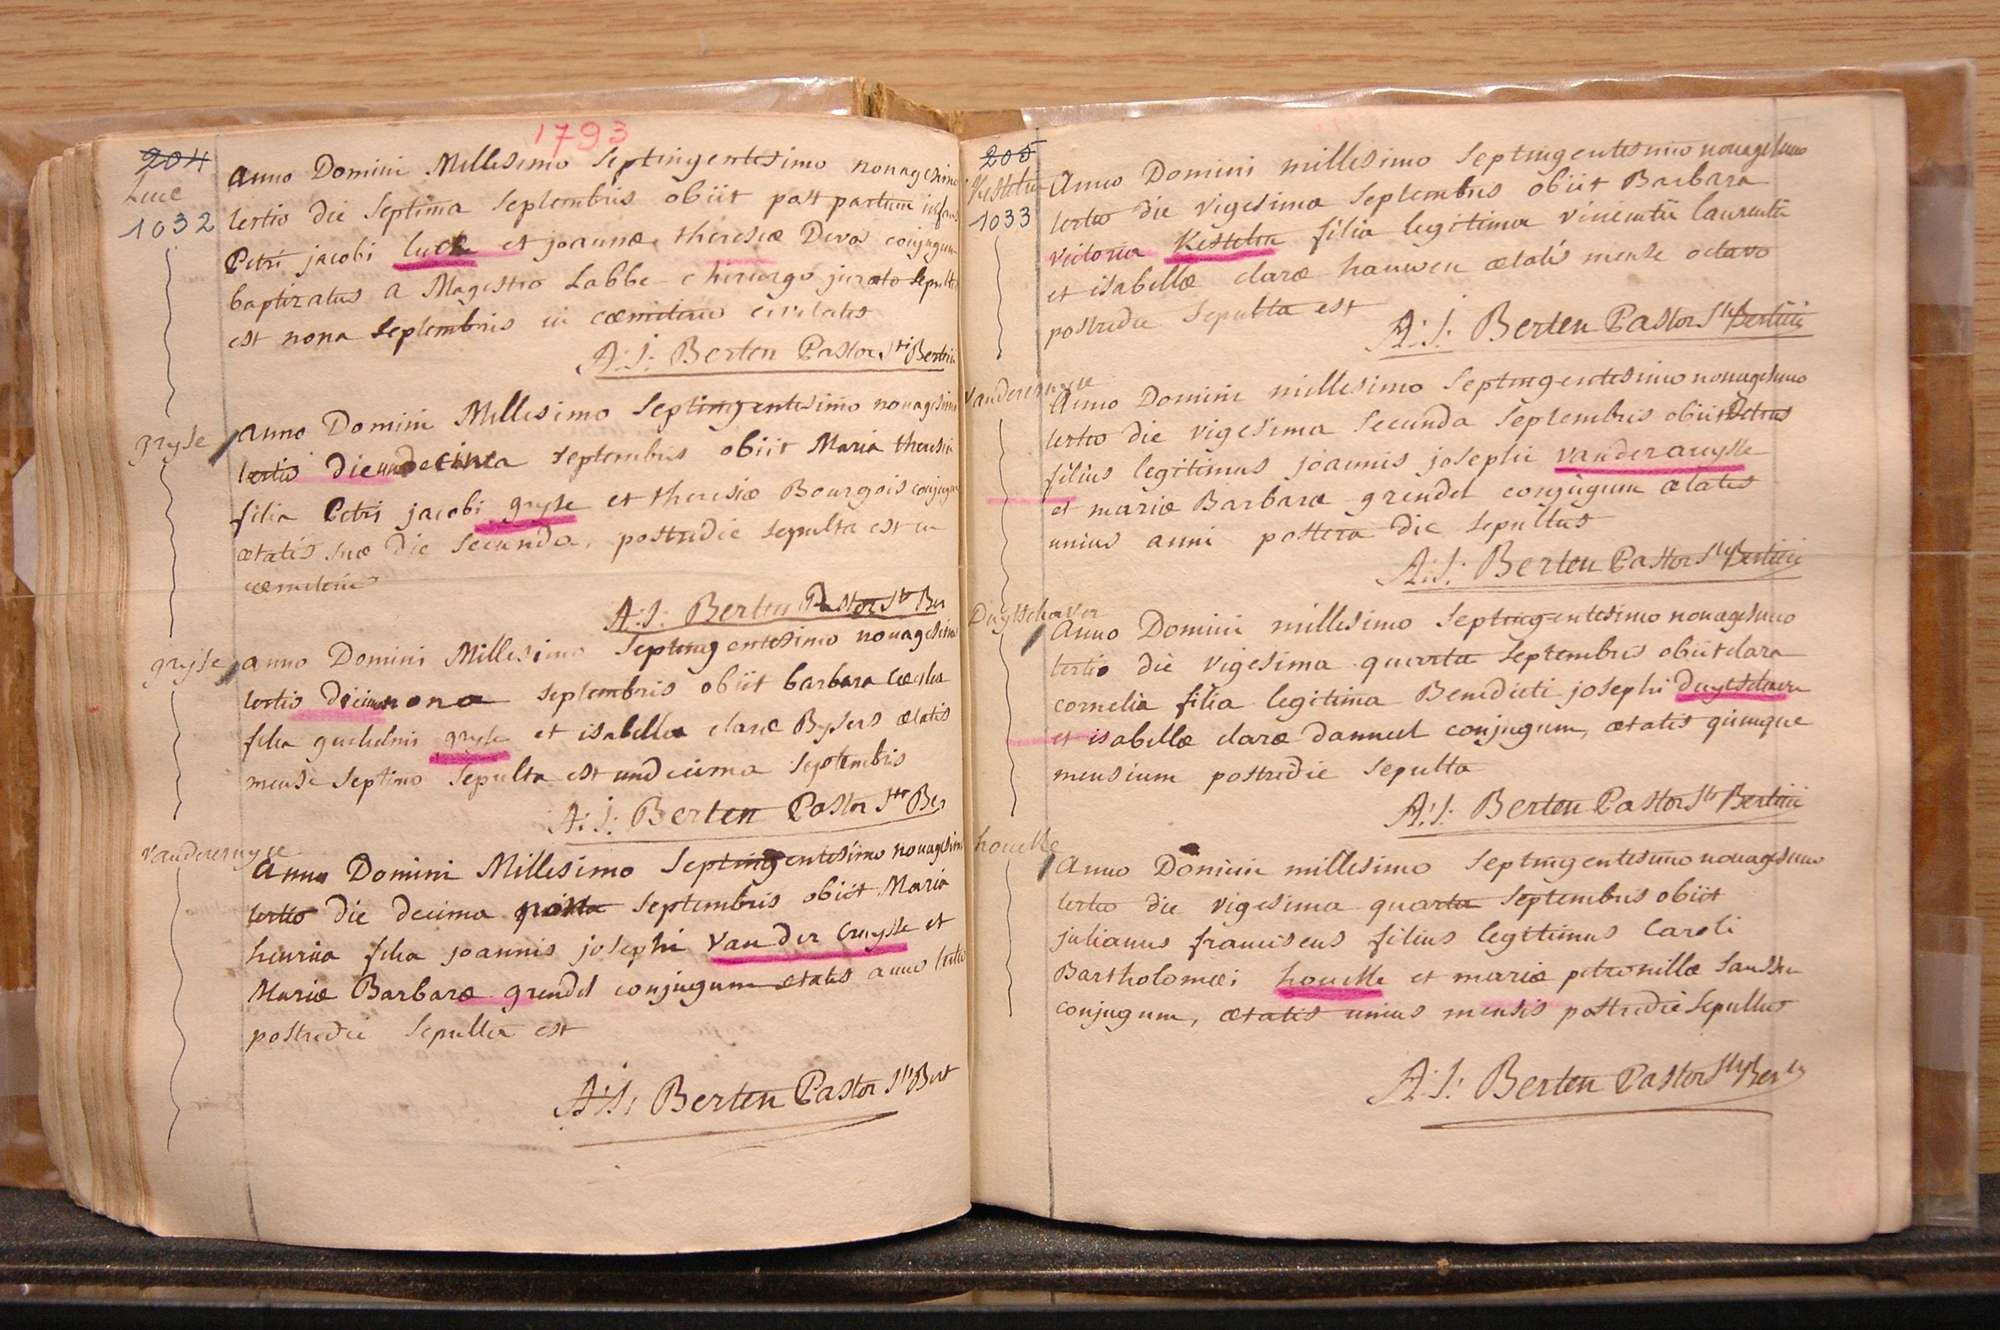 1793
204
Luce
1032
Anno Domini Millesimo Septingentesimo nonagesimo
tertio die Septima Septembris obiit post partum infans
Petri jacobi luce et joannæ theresiæ Devos conjugum
baptizatus a Magistro Labbe chirurgo jurato sepultus
est nona Septembris in cæmiterio civitatis
A: J: Berten Pastor Sti Bertini
gryse
anno Domini Millesimo Septingentesimo nonagesimo
tertio die undecima septembris obiit Maria theresia
filia Petri jacobi gryse et theresiæ Bourgois conjugum
ætatis suæ die secunda, postridie sepulta est in
cæmiterio
A: J: Berten Pastor Sti Ber
gryse
anno Domini Millesimo Septingentesimo nonagesimo
tertio die nona septembris obiit barbara Cæcilia
filia guilielmi gryse et isabella claræ Bysers ætatis
mense septimo sepulta est undecima septembris
A: J: Berten Pastor Sti Ber
Vandercruysse
Anno Domini Millesimo Septingentesimo nonagesimo
tertio die decima septembris obiit Maria
henrica filia joannis josephi Van der Cruysse et
Mariæ Barbaræ grendel conjugum ætatis anno tertio
postridie sepulta est
A: J: Berten Pastor Sti Bert
205
Kestelin
1033
Anno Domini millesimo Septingentesimo nonagesimo
tertio die vigesima Septembris obiit Barbara
victoria filia legitima vincentii laurentii
et isabellæ claræ hauwen ætatis mense octavo
postridie sepulta est
A: J: Berten Pastor Sti Bertini
Vandercruysse
Anno Domini millesimo Septingentesimo nonagesimo
tertio die vigesima secunda Septembris obiit Petrus
filius legitimus joannis josephi vandercruysse
et mariæ Barbaræ grendel conjugum ætatis
unius anni postera die sepultus
A: J: Berten Pastor Sti Bertini
Duytschaver
Anno Domini millesimo Septingentesimo nonagesimo
tertio die vigesima quarta septembris obiit clara
cornelia filia legitima Benedicti josephi duytschaver
et isabellæ claræ danneel conjugum, ætatis quinque
mensium postridie sepulta
A: J: Berten Pastor Sti Bertini
houelle
Anno Domini millesimo Septingentesimo nonagesimo
tertio die vigesima quarta septembris obiit
julianus franciscus filius legitimus Caroli
Bartholomæi houelle et mariæ petronillæ
conjugum, ætatis unius mensis postridie sepultus
A: J: Berten Pastor Sti Bertis